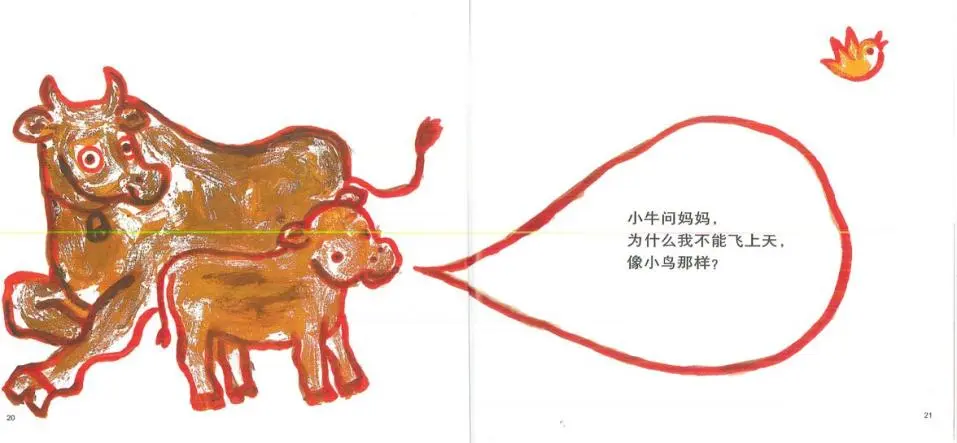 小牛问妈妈，
为什么我不能飞上天，
像小鸟那样？
20
21